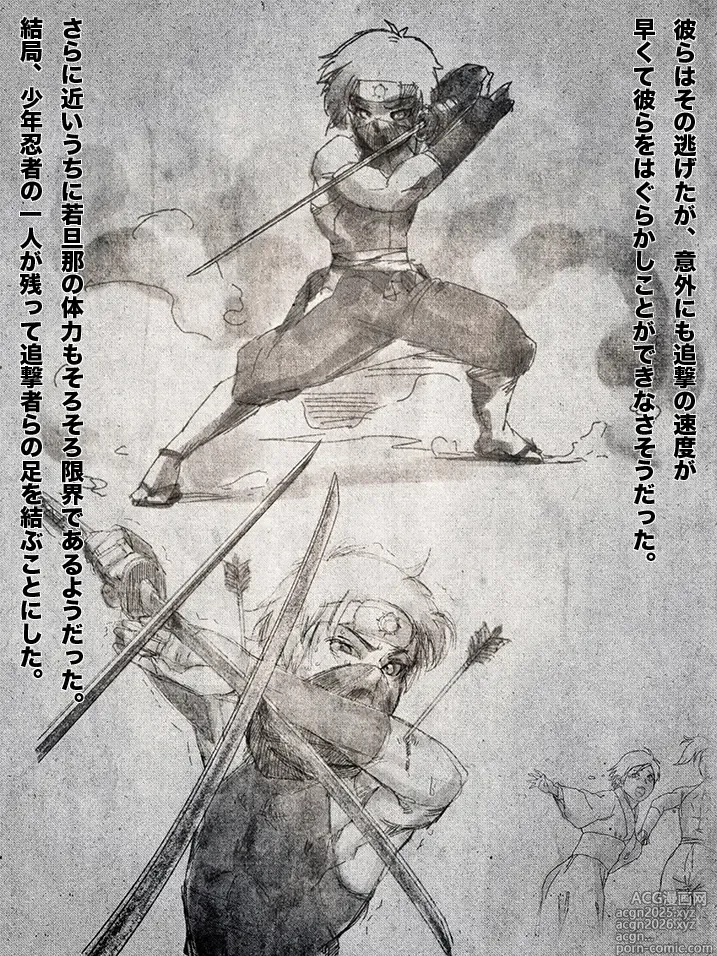 彼らはその逃げたが、意外にも追撃の速度が
早くて彼らをはぐらかしことができなさそうだった。
さらに近いうちに若旦那の体力もそろそろ限界であるようだった。
結局、少年忍者の一人が残って追撃者らの足を結ぶことにした。
ACG漫画网
acgn2025.xyz
acgn2026.xyz
acgn...
porn-comic.com